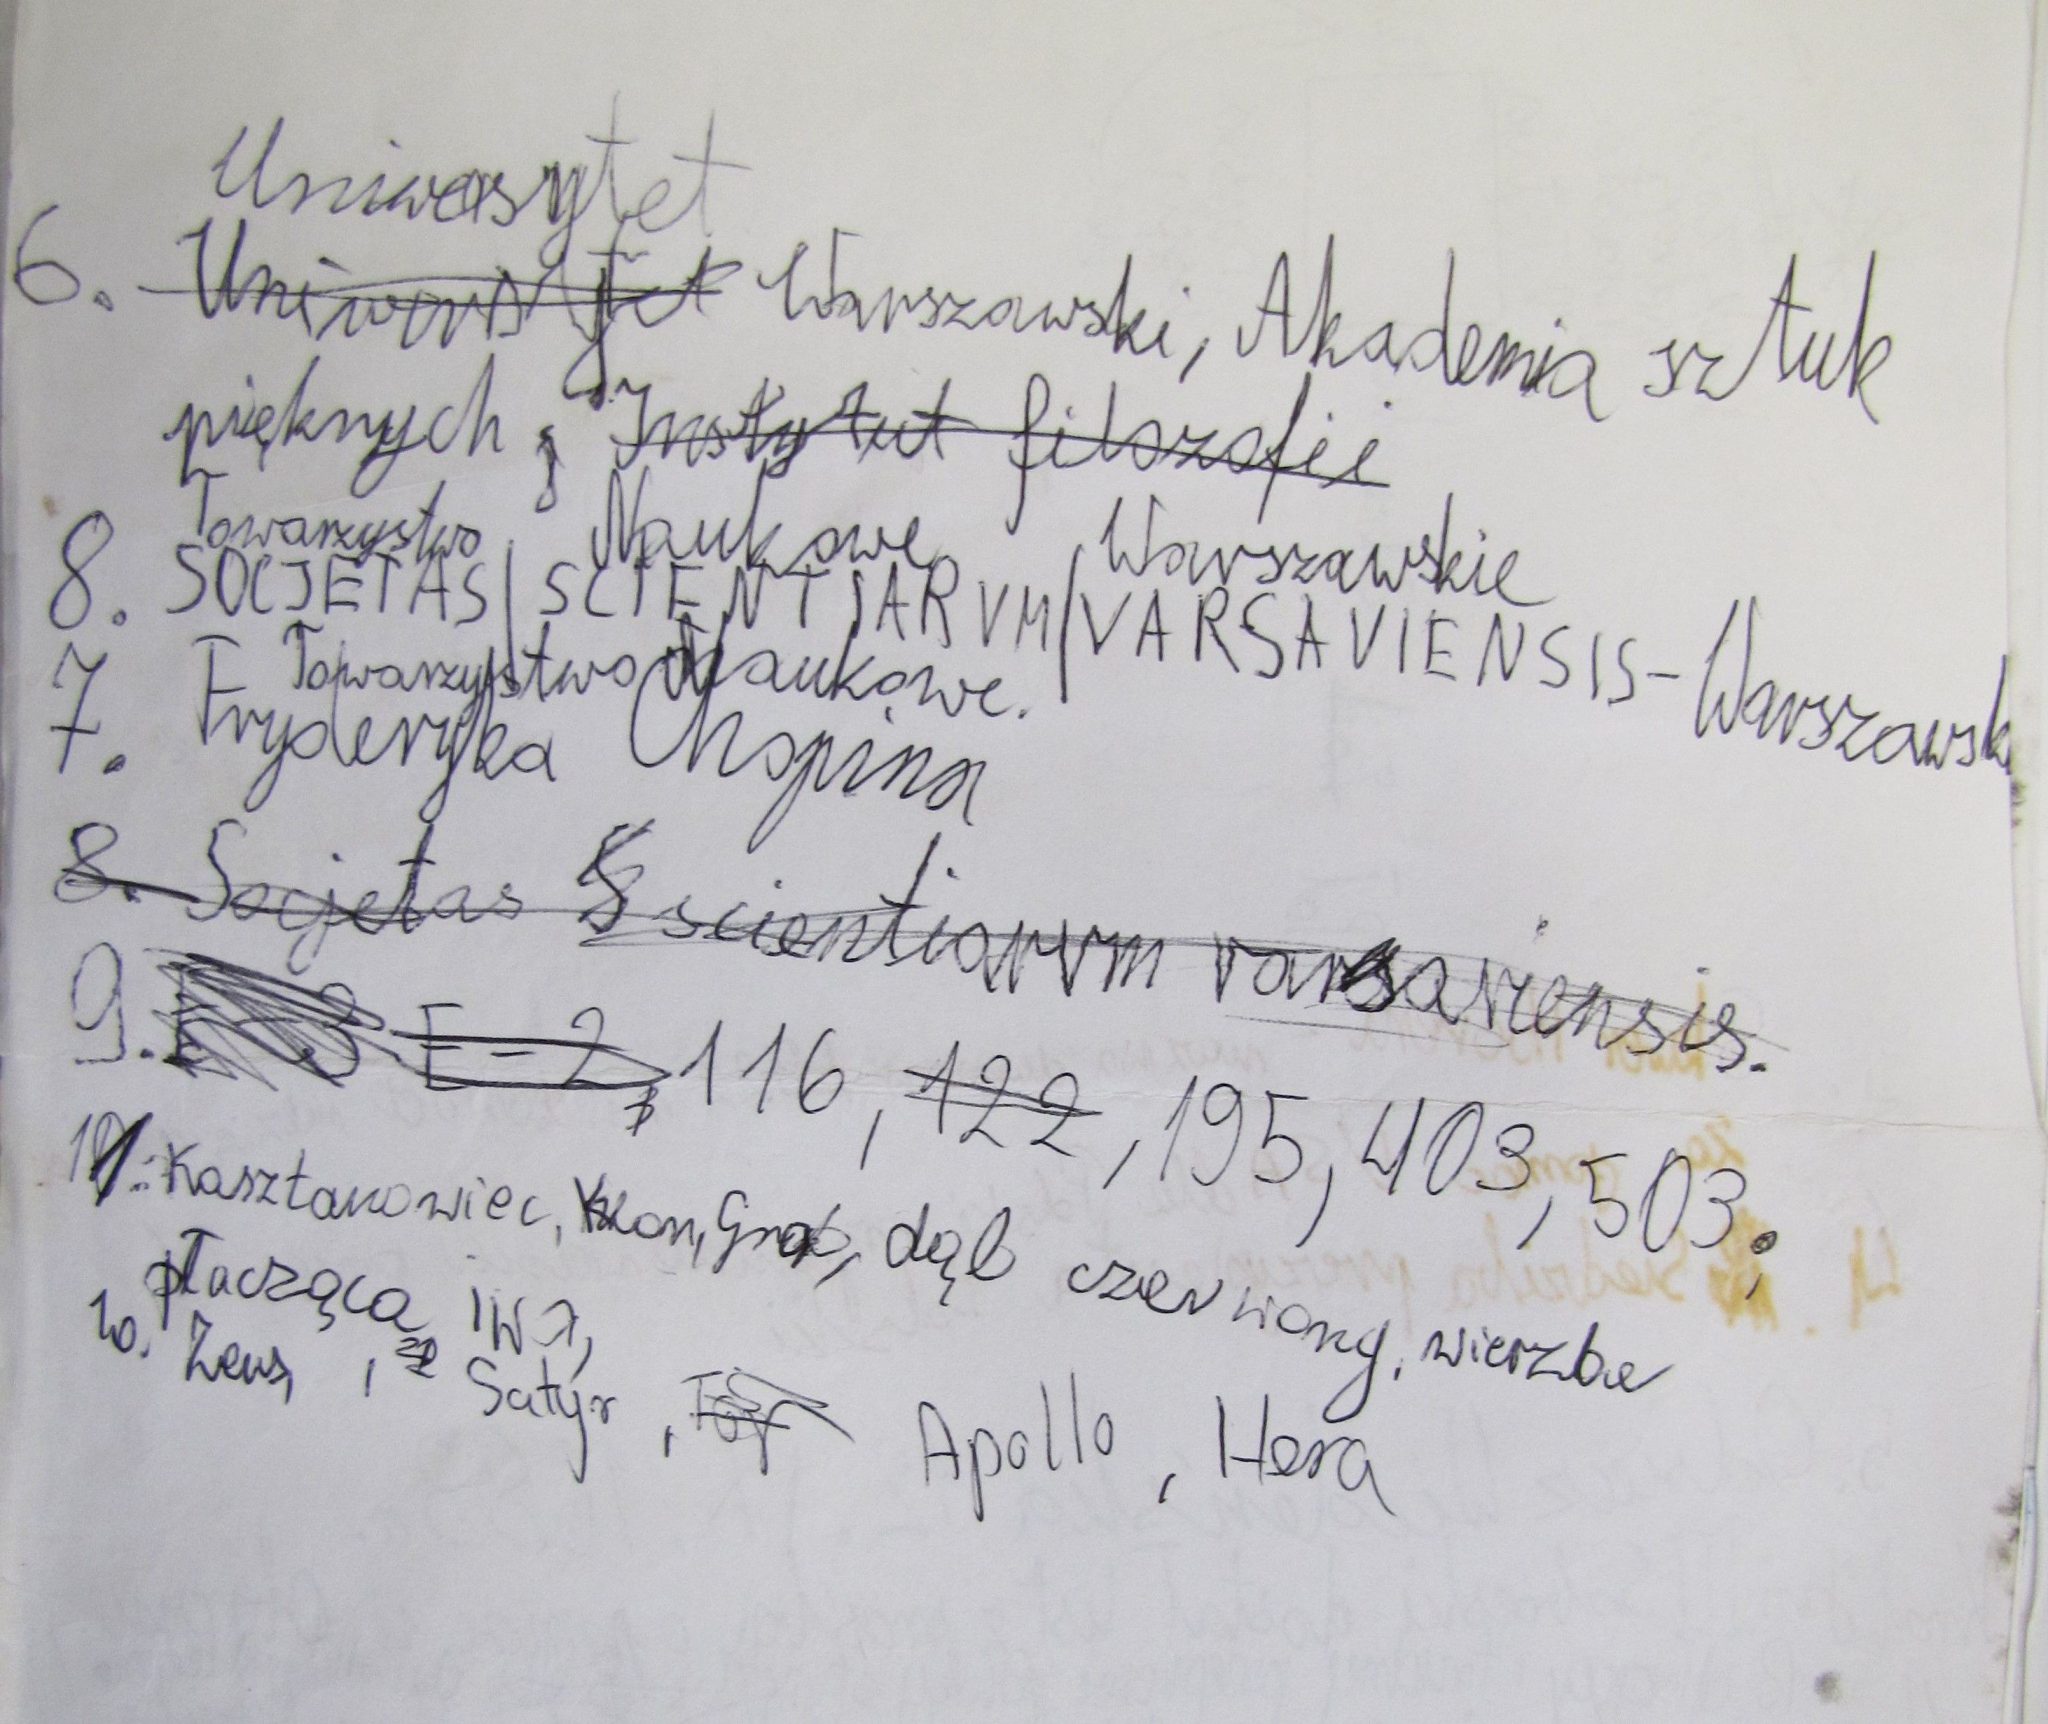 Uniwersytet
6. Uniwersytet Warszawski, Akademia sztuk
pięknych, Instytut filozofii
Towarzystwo Naukowe Warszawskie
8. SOCJETAS/SCIENTJARVM/VARSAVIENSIS-Warszawski
Towarzystwo Naukowe.
7. Fryderyka Chopina
8. Socjetas scientiarvm varsaviensis.
9. E-3 E-2, 116, 122, 195, 403, 503,
Kasztanowiec, Klon, Grab, dąb czerwony, wierzba
płacząca,
10. Zeus, Satyr, Apollo, Hera